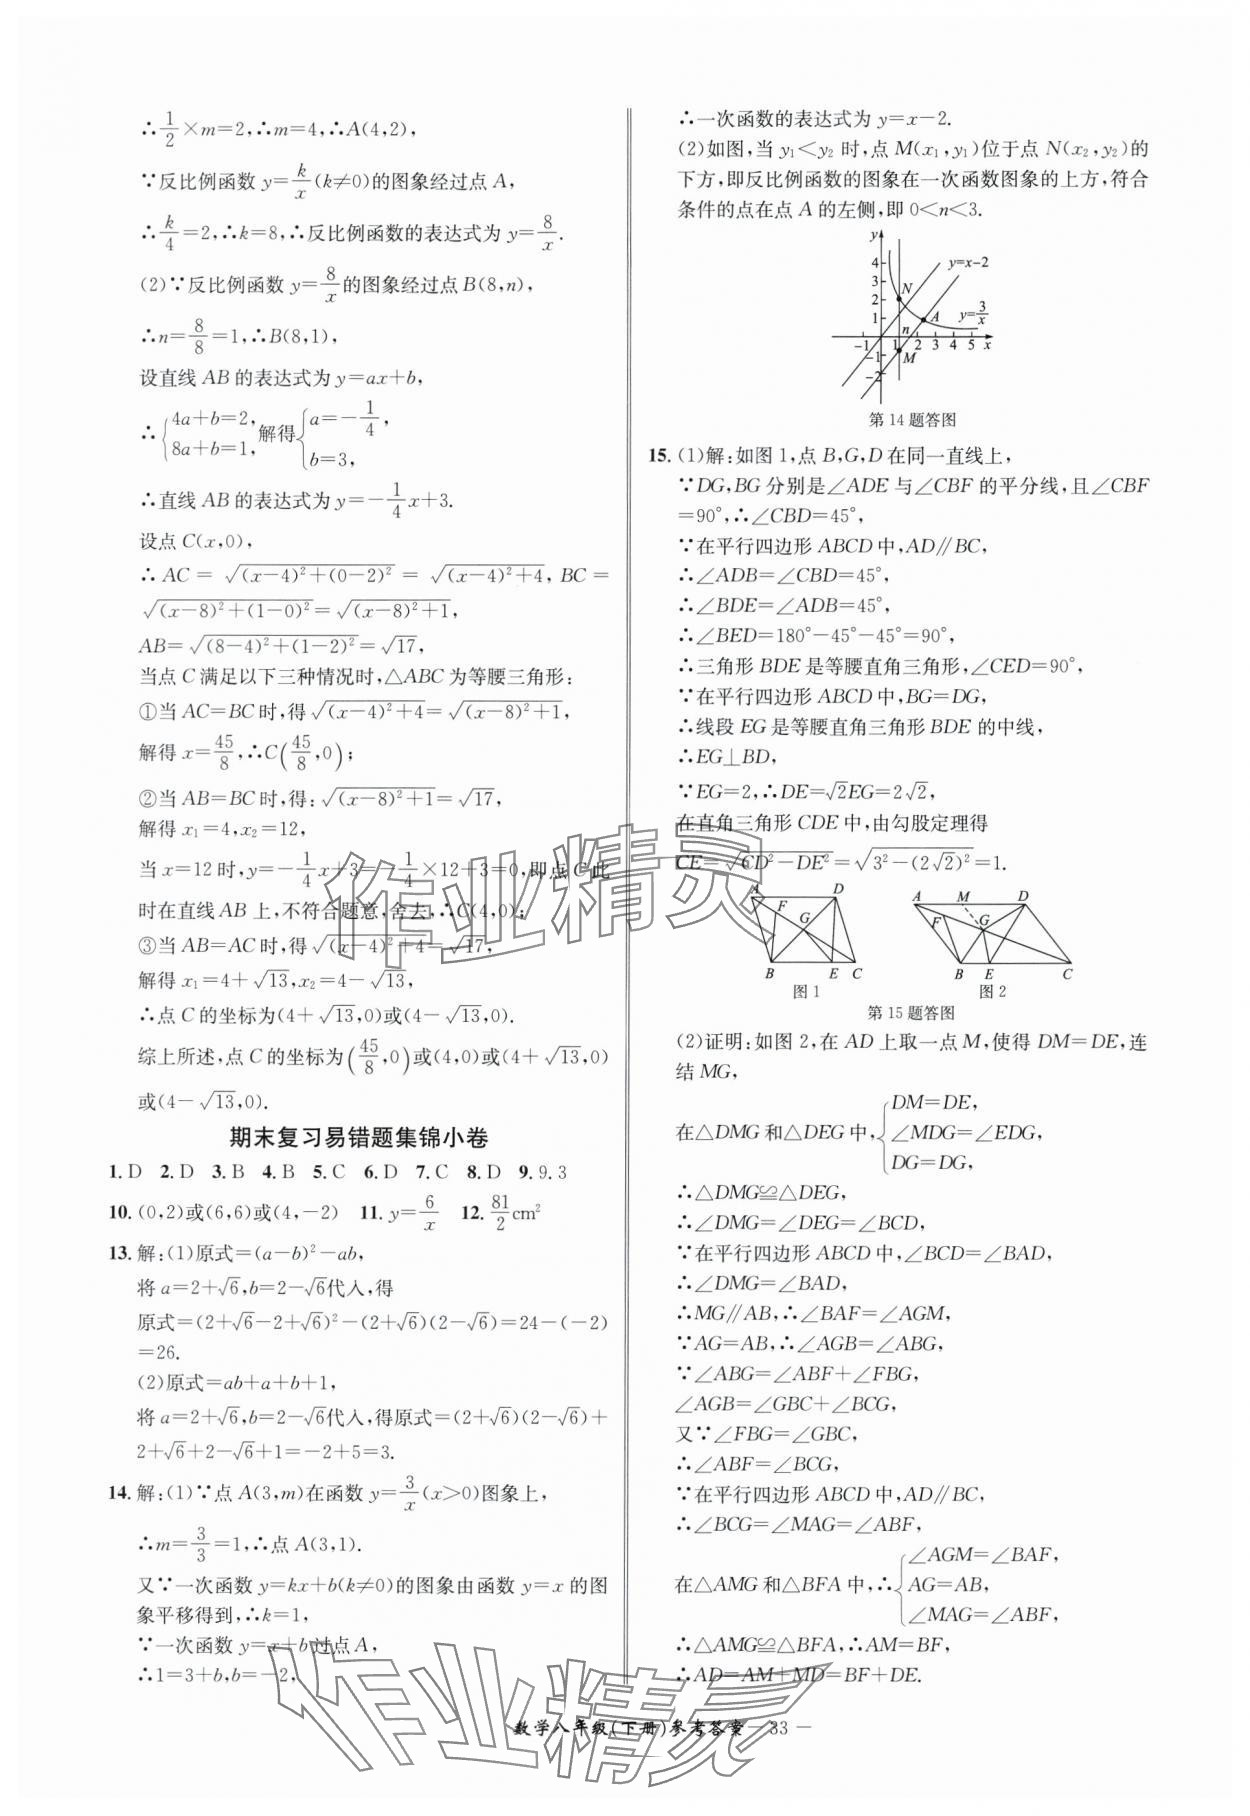 ∴1/2×m=2,∴m=4,∴A(4,2),
∵反比例函数 y=k/x(k≠0)的图象经过点 A,
∴k/4=2,∴k=8,∴反比例函数的表达式为 y=8/x.
(2)∵反比例函数 y=8/x的图象经过点 B(8,n),
∴n=8/8=1,∴B(8,1),
设直线 AB 的表达式为 y=ax+b,
∴{4a+b=2, 8a+b=1, 解得{a=-1/4, b=3,
∴直线 AB 的表达式为 y=-1/4x+3.
设点 C(x,0),
∴ AC = √((x-4)²+(0-2)²) = √((x-4)²+4), BC =
√((x-8)²+(1-0)²)=√((x-8)²+1),
AB=√((8-4)²+(1-2)²)=√17,
当点 C 满足以下三种情况时,△ABC 为等腰三角形:
①当 AC=BC 时,得√((x-4)²+4)=√((x-8)²+1),
解得 x=45/8,∴C(45/8,0);
②当 AB=BC 时,得:√((x-8)²+1)=√17,
解得 x₁=4,x₂=12,
当 x=12 时,y=-1/4x+3=-1/4×12+3=0,即点 C 此
时在直线 AB 上,不符合题意,舍去,∴C(4,0);
③当 AB=AC 时,得√((x-4)²+4)=√17,
解得 x₁=4+√13,x₂=4-√13,
∴点 C 的坐标为(4+√13,0)或(4-√13,0).
综上所述,点 C 的坐标为(45/8,0)或(4,0)或(4+√13,0)
或(4-√13,0).
期末复习易错题集锦小卷
1.D 2.D 3.B 4.B 5.C 6.D 7.C 8.D 9.9.3
10.(0,2)或(6,6)或(4,-2) 11.y=6/x 12.81/2cm²
13.解:(1)原式=(a-b)²-ab,
将 a=2+√6,b=2-√6代入,得
原式=(2+√6-2+√6)²-(2+√6)(2-√6)=24-(-2)
=26.
(2)原式=ab+a+b+1,
将 a=2+√6,b=2-√6代入,得原式=(2+√6)(2-√6)+
2+√6+2-√6+1=-2+5=3.
14.解:(1)∵点 A(3,m)在函数 y=3/x(x>0)图象上,
∴m=3/3=1,∴点 A(3,1).
又∵一次函数 y=kx+b(k≠0)的图象由函数 y=x 的图
象平移得到,∴k=1,
∵一次函数 y=x+b 过点 A,
∴1=3+b,b=-2,
∴一次函数的表达式为 y=x-2.
(2)如图,当 y₁<y₂ 时,点 M(x₁,y₁)位于点 N(x₂,y₂)的
下方,即反比例函数的图象在一次函数图象的上方,符合
条件的点在点 A 的左侧,即 0<n<3.
y
4 y=x-2
3 N
2
1 A y=3/x
n
-1 1 2 3 4 5 x
-1 M
-2
第 14 题答图
15.(1)解:如图 1,点 B,G,D 在同一直线上,
∵DG,BG 分别是∠ADE 与∠CBF 的平分线,且∠CBF
=90°,∴∠CBD=45°,
∵在平行四边形 ABCD 中,AD∥BC,
∴∠ADB=∠CBD=45°,
∴∠BDE=∠ADB=45°,
∴∠BED=180°-45°-45°=90°,
∴三角形 BDE 是等腰直角三角形,∠CED=90°,
∵在平行四边形 ABCD 中,BG=DG,
∴线段 EG 是等腰直角三角形 BDE 的中线,
∴EG⊥BD,
∵EG=2,∴DE=√2EG=2√2,
在直角三角形 CDE 中,由勾股定理得
CE=√(CD²-DE²)=√(3²-(2√2)²)=1.
A D A M D
F G F G
B E C B E C
图 1 图 2
第 15 题答图
(2)证明:如图 2,在 AD 上取一点 M,使得 DM=DE,连
结 MG,
在△DMG 和△DEG 中,{DM=DE, ∠MDG=∠EDG, DG=DG,
∴△DMG≌△DEG,
∴∠DMG=∠DEG=∠BCD,
∵在平行四边形 ABCD 中,∠BCD=∠BAD,
∴∠DMG=∠BAD,
∴MG∥AB,∴∠BAF=∠AGM,
∵AG=AB,∴∠AGB=∠ABG,
∵∠ABG=∠ABF+∠FBG,
∠AGB=∠GBC+∠BCG,
又∵∠FBG=∠GBC,
∴∠ABF=∠BCG,
∵在平行四边形 ABCD 中,AD∥BC,
∴∠BCG=∠MAG=∠ABF,
在△AMG 和△BFA 中,∴{∠AGM=∠BAF, AG=AB, ∠MAG=∠ABF,
∴△AMG≌△BFA,∴AM=BF,
∴AD=AM+MD=BF+DE.
数学八年级(下册)参考答案— 33 —
作业精灵
作业精灵